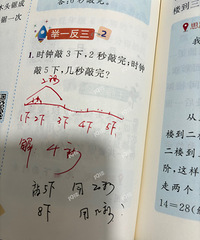 木头锯成
锯一次
举一反三 2
1. 时钟敲3下,2秒敲完;时钟
敲5下,几秒敲完?
2秒
1下 2下 3下 4下 5下
解 4秒
敲5下 用2秒
8下 用 秒
楼到三
从
楼到二
二楼到三
阶,这样
走两个
14=28(